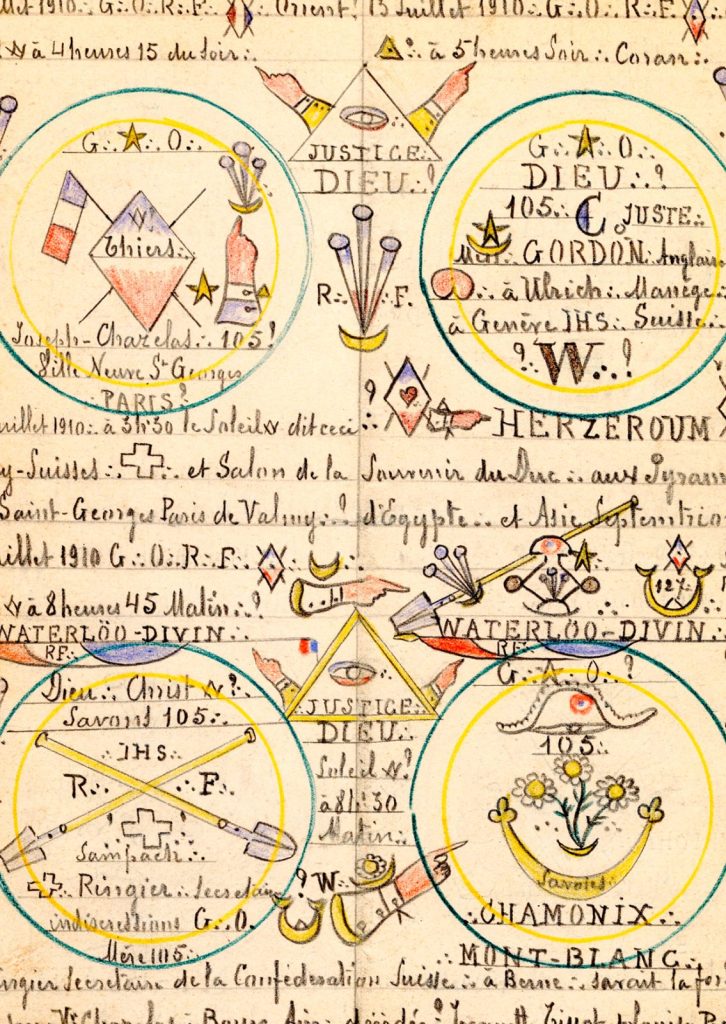 Juillet 1910 ∴ G ∴ O ∴ R ∴ F ∴ Orient!
13 Juillet 1910 ∴ G ∴ O ∴ R ∴ F ∴
à 4 heures 15 du Soir ∴
∴ à 5 heures Soir ∴ Coran ∴
G ∴ A ∴ O ∴
W
Thiers ∴
Joseph-Chazelas ∴ 105!
Ville Neuve St Georges
PARIS?
JUSTICE ∴
DIEU ∴ ?
R ∴ F ∴
G ∴ O ∴
DIEU ∴ ?
105 ∴ C JUSTE ∴
GORDON Anglais
∴ à Ulrich ∴ Manège
à Genève IHS ∴ Suisse ∴
? ∴ W ∴ !
Juillet 1910 ∴ à 3h30 le Soleil W dit ceci
? ∴ HERZEROUM
y-Suisses ∴ et Salon de la Souvenir du Duc ∴ aux Pyram
Saint-Georges Paris de Valmy ∴ ? d'Egypte ∴ et Asie Septentrio
Juillet 1910 G ∴ O ∴ R ∴ F ∴
W à 8 heures 45 Matin ∴ ?
127
WATERLÖO-DIVIN ∴
RF ∴
WATERLÖO-DIVIN ∴
RF ∴
Dieu ∴ Christ W ?
Savons 105 ∴
IHS ∴
R ∴ F ∴
Sampach ∴
Ringier ∴ Secretaire
indiscressions G ∴ O.
Mère 105 ∴
JUSTICE ∴
DIEU ∴
Soleil W ?
à 8h 30
Matin ∴
? W ∴
G ∴ A ∴ O ∴ ?
105 ∴
Savoies ∴
∴ CHAMONIX ∴
∴ MONT-BLANC ∴
Ringier Secretaire de la Confédération Suisse ∴ à Berne ∴ savait la for